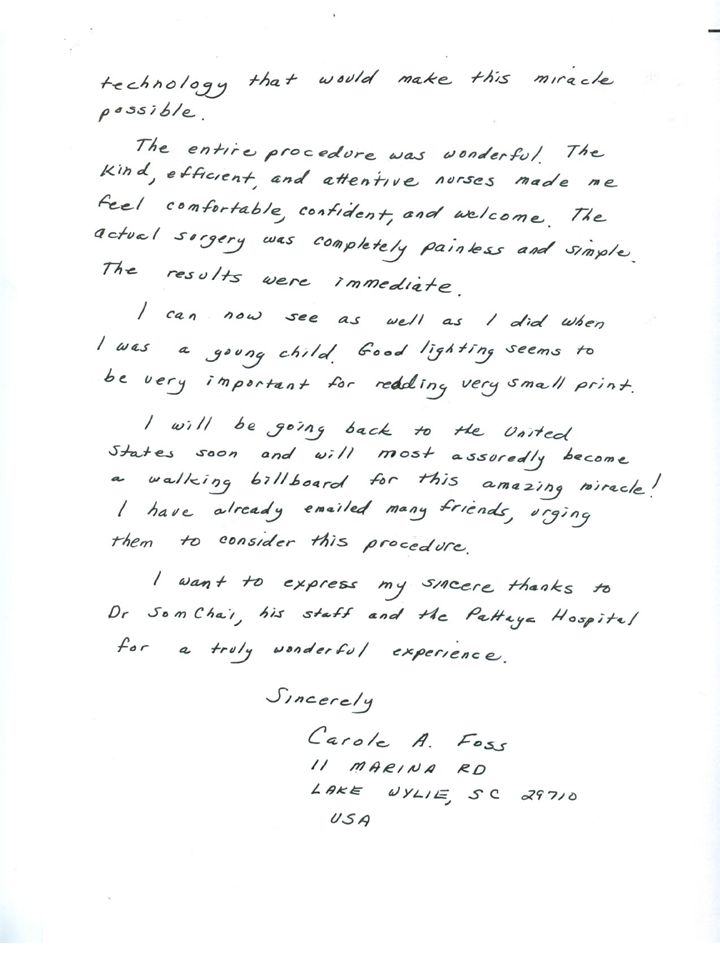 technology that would make this miracle
possible.
The entire procedure was wonderful. The
kind, efficient, and attentive nurses made me
feel comfortable, confident, and welcome. The
actual surgery was completely painless and simple.
The results were immediate.
I can now see as well as I did when
I was a young child. Good lighting seems to
be very important for reading very small print.
I will be going back to the United
States soon and will most assuredly become
a walking billboard for this amazing miracle!
I have already emailed many friends, urging
them to consider this procedure.
I want to express my sincere thanks to
Dr Som Chai, his staff and the Pattaya Hospital
for a truly wonderful experience.
Sincerely
Carole A. Foss
11 MARINA RD
LAKE WYLIE, SC 29710
USA